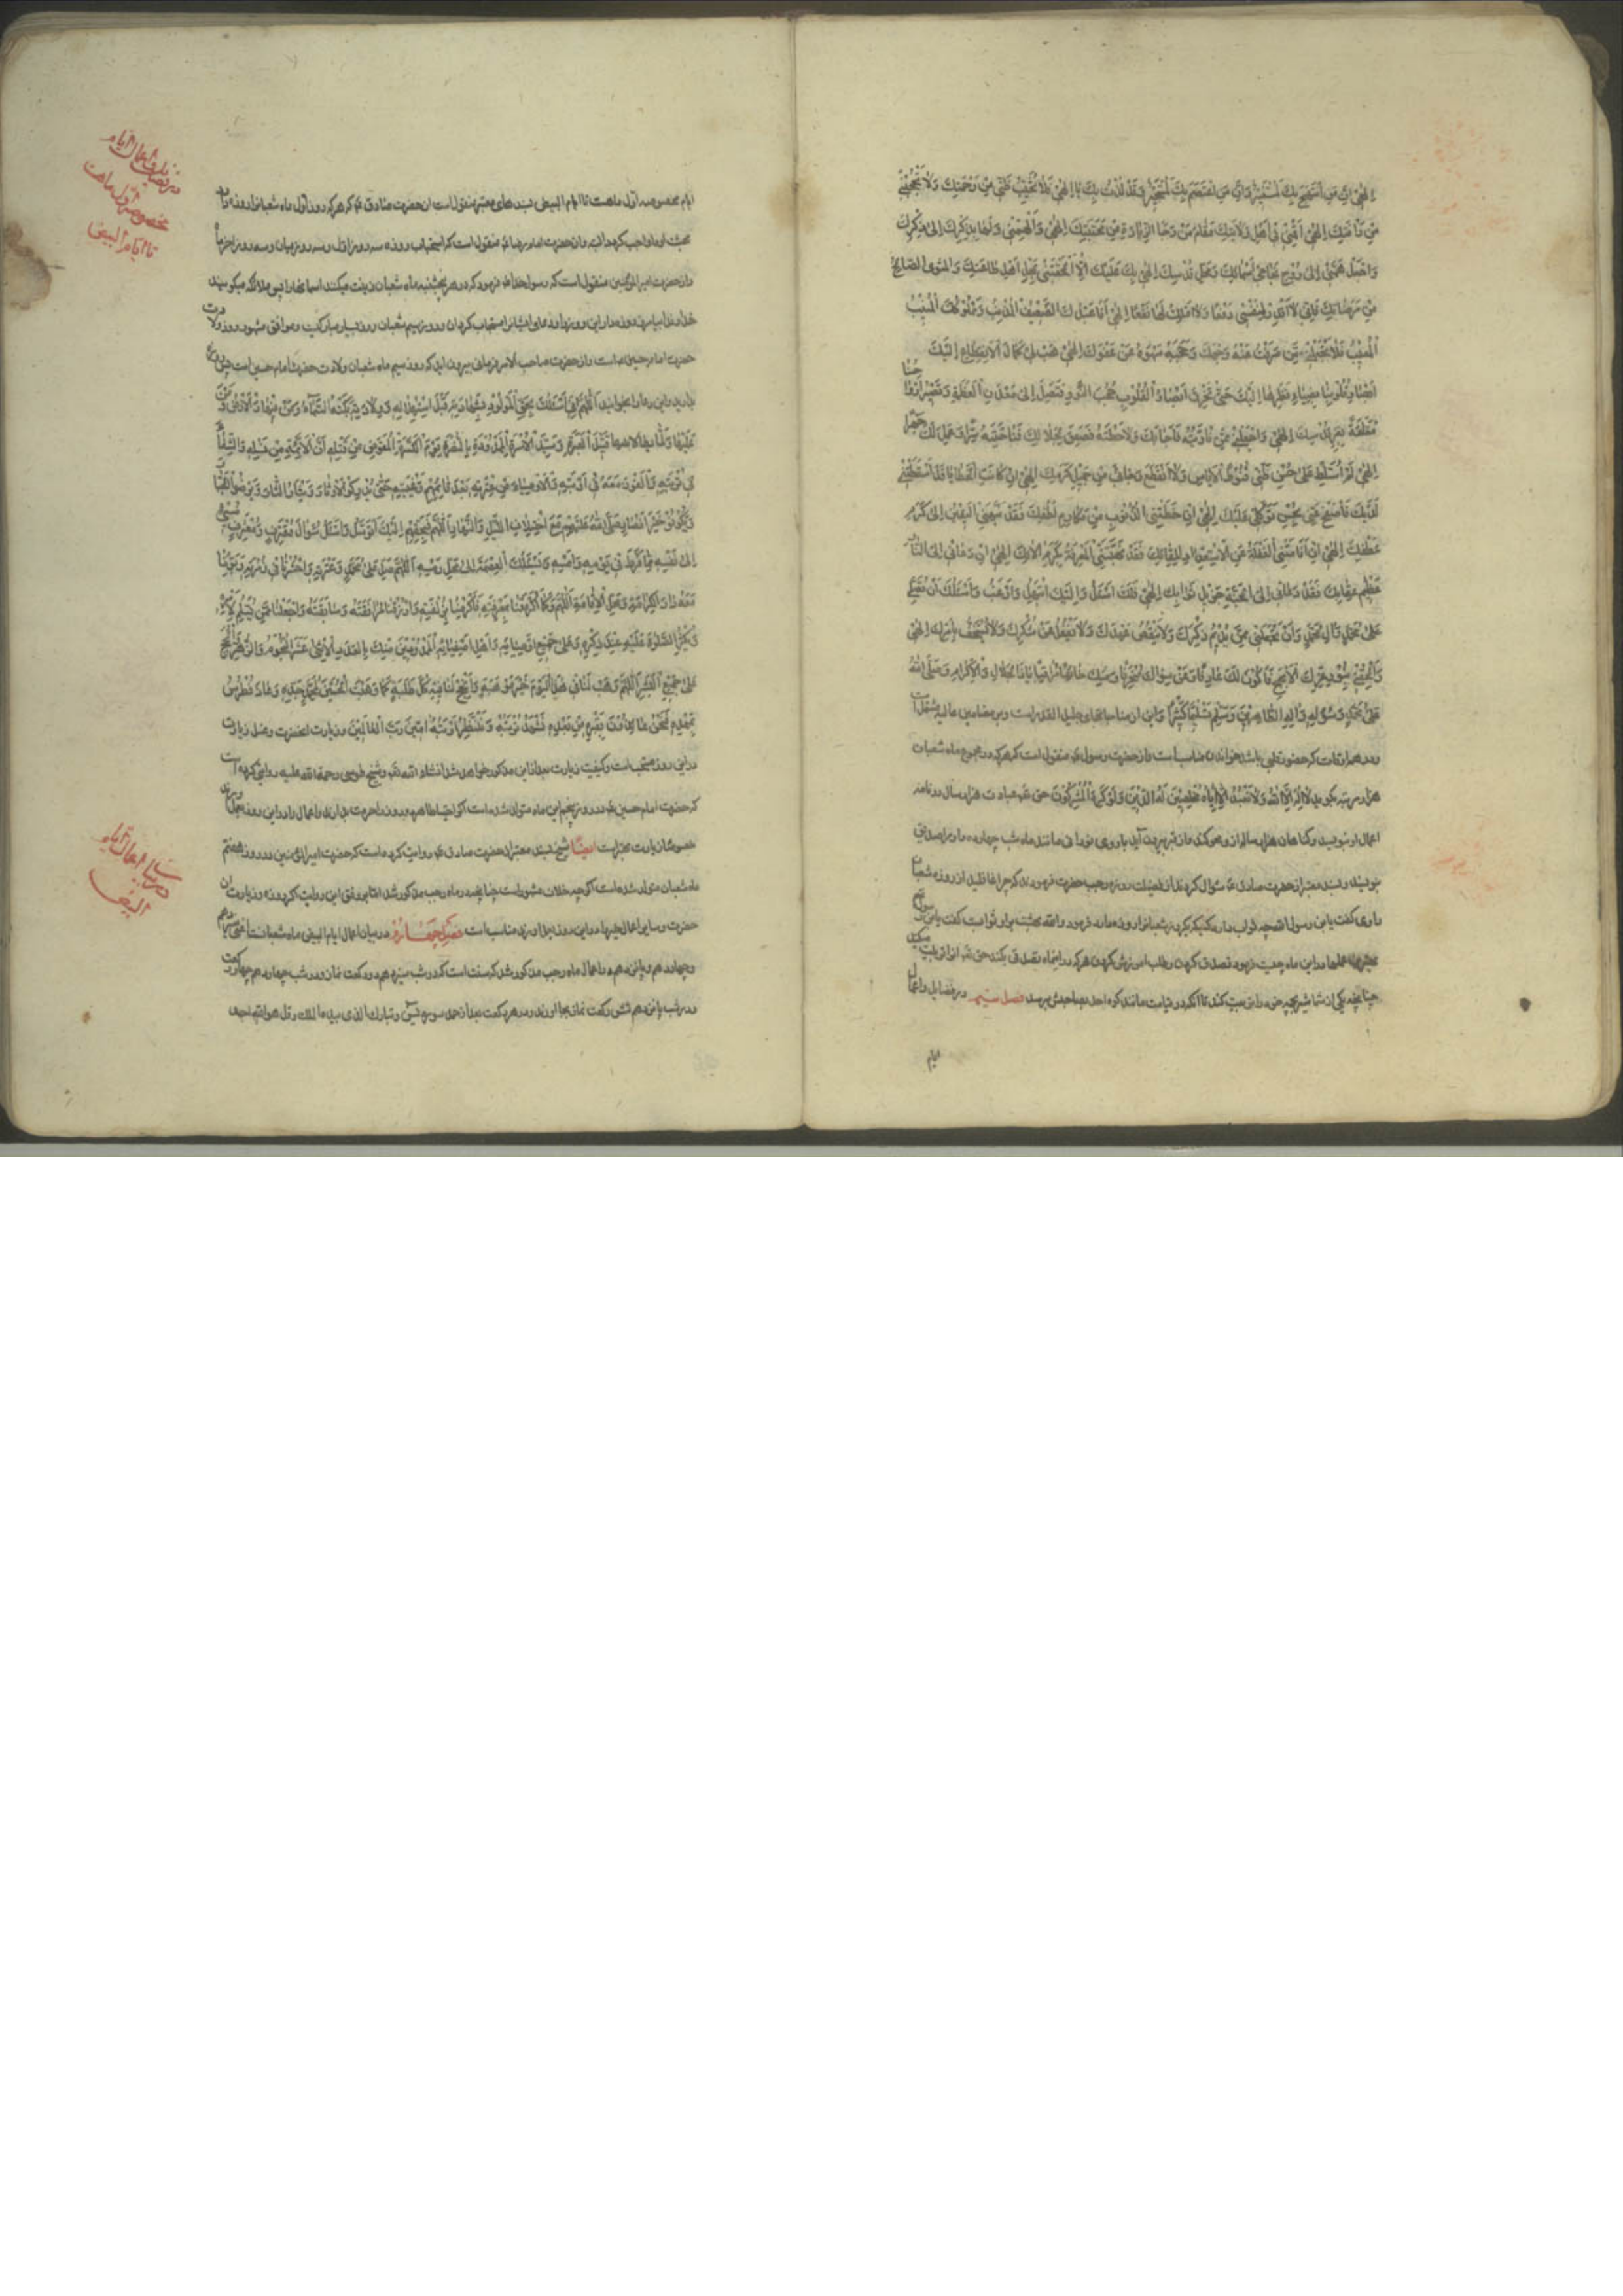 إِلٰهِي إِنَّ مَنِ انْتَهَجَ بِكَ لَمُسْتَنِيرٌ وَإِنَّ مَنِ اعْتَصَمَ بِكَ لَمُسْتَجِيرٌ وَقَدْ لُذْتُ بِكَ يَا إِلٰهِي فَلَا تُخَيِّبْ ظَنِّي مِنْ رَحْمَتِكَ وَلَا تَحْجُبْنِي
عَنْ رَأْفَتِكَ إِلٰهِي أَقِمْنِي فِي أَهْلِ وَلَايَتِكَ مَقَامَ مَنْ رَجَا الزِّيَادَةَ مِنْ مَحَبَّتِكَ إِلٰهِي وَأَلْهِمْنِي وَلَهًا بِذِكْرِكَ إِلَى ذِكْرِكَ
وَاجْعَلْ هِمَّتِي إِلَى رَوْحِ نَجَاحِ أَسْمَائِكَ وَمَحَلِّ قُدْسِكَ إِلٰهِي بِكَ عَلَيْكَ إِلَّا أَلْحَقْتَنِي بِمَحَلِّ أَهْلِ طَاعَتِكَ وَالْمَثْوَى الصَّالِحِ
مِنْ مَرْضَاتِكَ فَإِنِّي لَا أَقْدِرُ لِنَفْسِي دَفْعًا وَلَا أَمْلِكُ لَهَا نَفْعًا إِلٰهِي أَنَا عَبْدُكَ الضَّعِيفُ الْمُذْنِبُ وَمَمْلُوكُكَ الْمُنِيبُ
الْمَعِيبُ فَلَا تَجْعَلْنِي مِمَّنْ صَرَفْتَ عَنْهُ وَجْهَكَ وَحَجَبَهُ سَهْوُهُ عَنْ عَفْوِكَ إِلٰهِي هَبْ لِي كَمَالَ الْاِنْقِطَاعِ إِلَيْكَ
أَبْصَارَ قُلُوبِنَا بِضِيَاءِ نَظَرِهَا إِلَيْكَ حَتَّى تَخْرِقَ أَبْصَارُ الْقُلُوبِ حُجُبَ النُّورِ فَتَصِلَ إِلَى مَعْدِنِ الْعَظَمَةِ وَتَصِيرَ أَرْوَاحُنَا
مُعَلَّقَةً بِعِزِّ قُدْسِكَ إِلٰهِي وَاجْعَلْنِي مِمَّنْ نَادَيْتَهُ فَأَجَابَكَ وَلَاحَظْتَهُ فَصَعِقَ لِجَلَالِكَ فَنَاجَيْتَهُ سِرًّا وَعَمِلَ لَكَ جَهْرًا
إِلٰهِي لَمْ أُسَلِّطْ عَلَى حُسْنِ ظَنِّي قُنُوطَ الْأَيَاسِ وَلَا انْقَطَعَ رَجَائِي مِنْ جَمِيلِ كَرَمِكَ إِلٰهِي إِنْ كَانَتِ الْخَطَايَا قَدْ أَسْقَطَتْنِي
لَدَيْكَ فَاصْفَحْ عَنِّي بِحُسْنِ تَوَكُّلِي عَلَيْكَ إِلٰهِي إِنْ حَطَّتْنِي الذُّنُوبُ مِنْ مَكَارِمِ لُطْفِكَ فَقَدْ نَبَّهَنِي الْيَقِينُ إِلَى كَرَمِ
عَطْفِكَ إِلٰهِي إِنْ أَنَامَتْنِي الْغَفْلَةُ عَنِ الْاِسْتِعْدَادِ لِلِقَائِكَ فَقَدْ نَبَّهَتْنِي الْمَعْرِفَةُ بِكَرَمِ آلَائِكَ إِلٰهِي إِنْ دَعَانِي إِلَى النَّارِ
عَظِيمُ عِقَابِكَ فَقَدْ دَعَانِي إِلَى الْجَنَّةِ جَزِيلُ ثَوَابِكَ إِلٰهِي فَلَكَ أَسْئَلُ وَإِلَيْكَ أَبْتَهِلُ وَأَرْغَبُ وَأَسْئَلُكَ أَنْ تُصَلِّيَ
عَلَى مُحَمَّدٍ وَآلِ مُحَمَّدٍ وَأَنْ تَجْعَلَنِي مِمَّنْ يُدِيمُ ذِكْرَكَ وَلَا يَنْقُضُ عَهْدَكَ وَلَا يَغْفُلُ عَنْ شُكْرِكَ وَلَا يَسْتَخِفُّ بِأَمْرِكَ إِلٰهِي
وَأَلْحِقْنِي بِنُورِ عِزِّكَ الْأَبْهَجِ فَأَكُونَ لَكَ عَارِفًا وَعَنْ سِوَاكَ مُنْحَرِفًا وَمِنْكَ خَائِفًا مُرَاقِبًا يَا ذَا الْجَلَالِ وَالْإِكْرَامِ وَصَلَّى اللهُ
عَلَى مُحَمَّدٍ رَسُولِهِ وَآلِهِ الطَّاهِرِينَ وَسَلَّمَ تَسْلِيمًا كَثِيرًا واین از مناجاتهای جلیل القدر است وبر مضامین عالیه مشتمل است
ودر هر اوقات که حضور قلبی باشد خواندن مناسب است واز حضرت رسول ص منقول است که هر که در مجموع ماه شعبان
هزار مرتبه بگوید لَا إِلٰهَ إِلَّا اللهُ وَلَا نَعْبُدُ إِلَّا إِيَّاهُ مُخْلِصِينَ لَهُ الدِّينَ وَلَوْ كَرِهَ الْمُشْرِكُونَ حق تعه عبادت هزار سال در نامه
اعمال او بنویسد وکناهان هزار ساله از او محو کند واز قبر بیرون آید با روی نورانی مانند ماه شب چهارده واو را صدیق
بنویسند وبسند معتبر از حضرت صادق ع سوال کردند از فضیلت روزه رجب حضرت فرمودند که چرا غافلید از روزه شعبان
راوی کفت یابن رسول الله چه ثواب دارد کسیکه یکروز شعبانرا روزه بدارد فرمود والله بهشت برای او ثوابست کفت یابن رسول
بهترین عملها در این ماه چیست فرمود تصدق کردن وطلب آمرزش کردن هر که در اینماه تصدق بکند حق تعه انرا تربیت میکند
چنانچه یکی از شما شتر بچه خود را تربیت کند تا آنکه در قیامت مانند کوه احد بصاحبش برسد فصل سیم در فضایل واعمال
ایام
ایام مخصوصه اول ماهست تا ایام البیض بسندهای معتبر منقول است از حضرت صادق ع که هر که روز اول ماه شعبانرا روزه دارد
بهشت او را واجب کردد البته واز حضرت امام رضا ع منقول است که استحباب روزه سه روز از اول وسه روز از میان وسه روز از آخر ماه
واز حضرت امیرالمؤمنین منقول است که رسول خدا ص فرمود که در هر پنجشنبه ماه شعبان زینت میکنند اسمانها را پس ملائکه میکویند
خداوندا بیامرز روزه داران این روز را
حضرت امام حسین ع است واز حضرت صاحب الامر فرمانی بیرون آمد که روز سیم ماه شعبان ولادت حضرت امام حسین است پس روزه
بدارید واین دعا را بخوانید اَللّٰهُمَّ إِنِّي أَسْئَلُكَ بِحَقِّ الْمَوْلُودِ فِي هٰذَا الْيَوْمِ الْمَوْعُودِ بِشَهَادَتِهِ قَبْلَ اسْتِهْلَالِهِ وَوِلَادَتِهِ بَكَتْهُ السَّمَاءُ وَمَنْ فِيهَا وَالْأَرْضُ وَمَنْ
عَلَيْهَا وَلَمَّا يَطَأْ لَابَتَيْهَا قَتِيلِ الْعَبْرَةِ وَسَيِّدِ الْأُسْرَةِ الْمَمْدُودِ بِالنُّصْرَةِ يَوْمَ الْكَرَّةِ الْمُعَوَّضِ مِنْ قَتْلِهِ أَنَّ الْأَئِمَّةَ مِنْ نَسْلِهِ وَالشِّفَاءَ
فِي تُرْبَتِهِ وَالْفَوْزَ مَعَهُ فِي أَوْبَتِهِ وَالْأَوْصِيَاءَ مِنْ عِتْرَتِهِ بَعْدَ قَائِمِهِمْ وَغَيْبَتِهِ حَتَّى يُدْرِكُوا الْأَوْتَارَ وَيَثْأَرُوا الثَّارَ وَيُرْضُوا الْجَبَّارَ
وَيَكُونُوا خَيْرَ أَنْصَارٍ صَلَّى اللهُ عَلَيْهِمْ مَعَ اخْتِلَافِ اللَّيْلِ وَالنَّهَارِ اَللّٰهُمَّ فَبِحَقِّهِمْ إِلَيْكَ أَتَوَسَّلُ وَأَسْئَلُ سُؤَالَ مُقْتَرِفٍ مُعْتَرِفٍ مُسِيءٍ
إِلَى نَفْسِهِ مِمَّا فَرَّطَ فِي يَوْمِهِ وَأَمْسِهِ وَيَسْئَلُكَ الْعِصْمَةَ إِلَى مَحَلِّ رَمْسِهِ اَللّٰهُمَّ صَلِّ عَلَى مُحَمَّدٍ وَعِتْرَتِهِ وَاحْشُرْنَا فِي زُمْرَتِهِ وَبَوِّئْنَا
مَعَهُ دَارَ الْكَرَامَةِ وَمَحَلَّ الْإِقَامَةِ اَللّٰهُمَّ وَكَمَا أَكْرَمْتَنَا بِمَعْرِفَتِهِ فَأَكْرِمْنَا بِزُلْفَتِهِ وَارْزُقْنَا مُرَافَقَتَهُ وَسَابِقَتَهُ وَاجْعَلْنَا مِمَّنْ يُسَلِّمُ لِأَمْرِهِ
وَيُكْثِرُ الصَّلَاةَ عَلَيْهِ عِنْدَ ذِكْرِهِ وَعَلَى جَمِيعِ أَوْصِيَائِهِ وَأَهْلِ أَصْفِيَائِهِ الْمَمْدُودِينَ مِنْكَ بِالْعَدَدِ الْاِثْنَيْ عَشَرَ النُّجُومِ الزُّهْرِ وَالْحُجَجِ
عَلَى جَمِيعِ الْبَشَرِ اَللّٰهُمَّ وَهَبْ لَنَا فِي هٰذَا الْيَوْمِ خَيْرَ مَوْهِبَةٍ وَأَنْجِحْ لَنَا فِيهِ كُلَّ طَلِبَةٍ كَمَا وَهَبْتَ الْحُسَيْنَ لِمُحَمَّدٍ جَدِّهِ وَعَاذَ فُطْرُسُ
بِمَهْدِهِ فَنَحْنُ عَائِذُونَ بِقَبْرِهِ مِنْ بَعْدِهِ نَشْهَدُ تُرْبَتَهُ وَنَنْتَظِرُ أَوْبَتَهُ آمِينَ رَبَّ الْعَالَمِينَ وزیارت انحضرت وغسل زیارت
در این روز مستحب است وکیفیت زیارت بعد از این مذکور خواهد شد انشاء الله تعه وشیخ طوسی رحمة الله علیه روایتی کرده است
که حضرت امام حسین ع در روز پنجم این ماه متولد شده است اکر احتیاطا هر دو روز را حرمت بدارند واعمال را در این روز بعمل آورند
خصوصا زیارت بهتر است ایضا شیخ بسند معتبر از حضرت صادق ع روایت کرده است که حضرت امیرالمؤمنین در روز هفتم
ماه شعبان متولد شده است اکرچه خلاف مشهور است چنانچه در ماه رجب مذکور شد اما بر وفق این روایت اکر روزه وزیارت آن
حضرت وسایر اعمال خیر را در این روز بعمل آورند مناسب است فصل چهارم در بیان اعمال ایام البیض ماه شعبانست یعنی سیزدهم
وچهاردهم وپانزدهم در اعمال ماه رجب مذکور شد که سنت است که در شب سیزدهم دو رکعت نماز ودر شب چهاردهم چهار رکعت
ودر شب پانزدهم شش رکعت نماز بجا اورند ودر هر رکعت بعد از حمد سوره یس وتبارک الذی بیده الملک وقل هو الله احد
در فضایل واعمال ایام
مخصوصه اول ماهست
تا ایام البیض
در بیان اعمال ایام
البیض